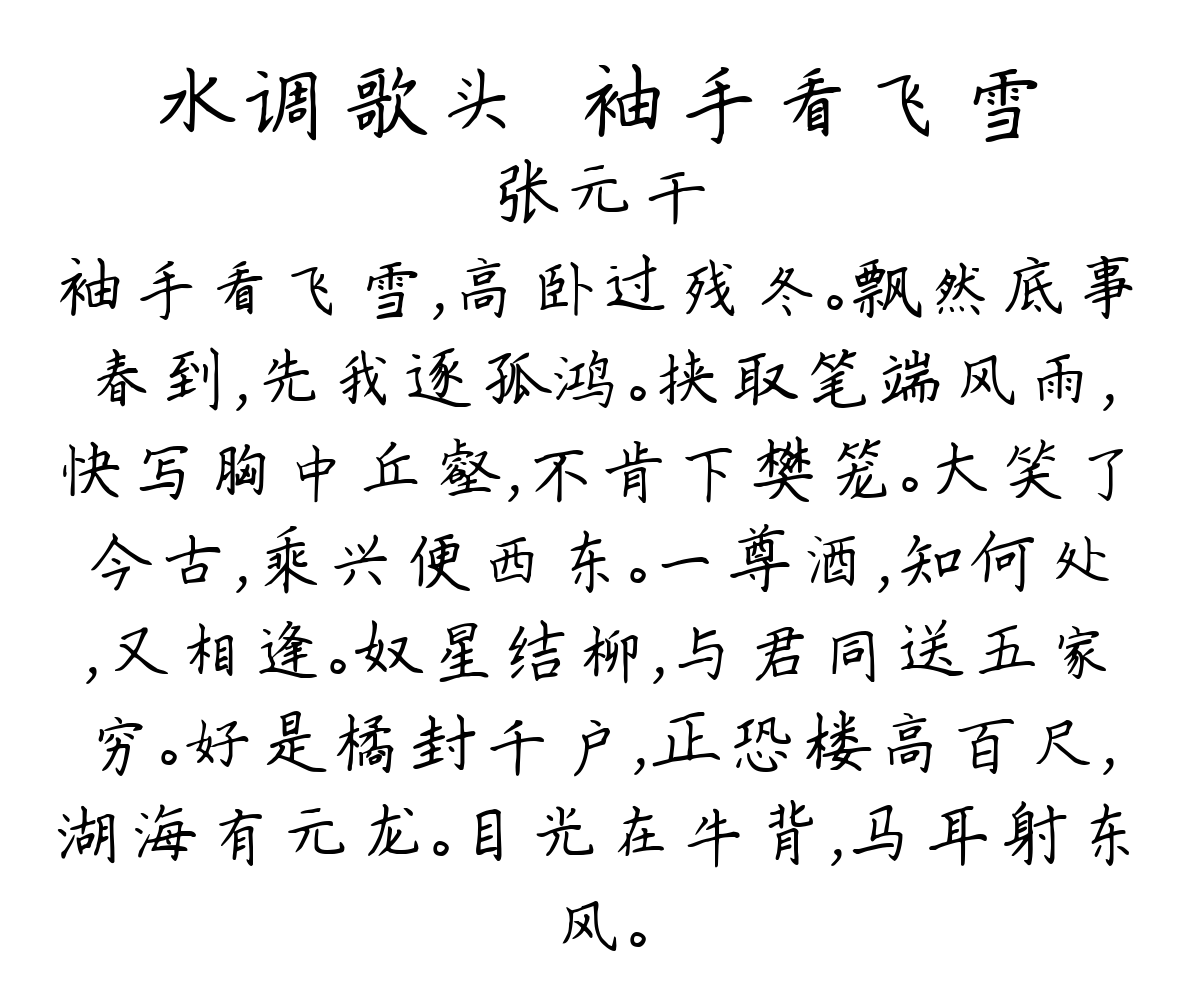 水调歌头 袖手看飞雪
张元干
袖手看飞雪,高卧过残冬。飘然底事
春到,先我逐孤鸿。挟取笔端风雨,
快写胸中丘壑,不肯下樊笼。大笑了
今古,乘兴便西东。一尊酒,知何处
,又相逢。奴星结柳,与君同送五家
穷。好是橘封千户,正恐楼高百尺,
湖海有元龙。目光在牛背,马耳射东
风。